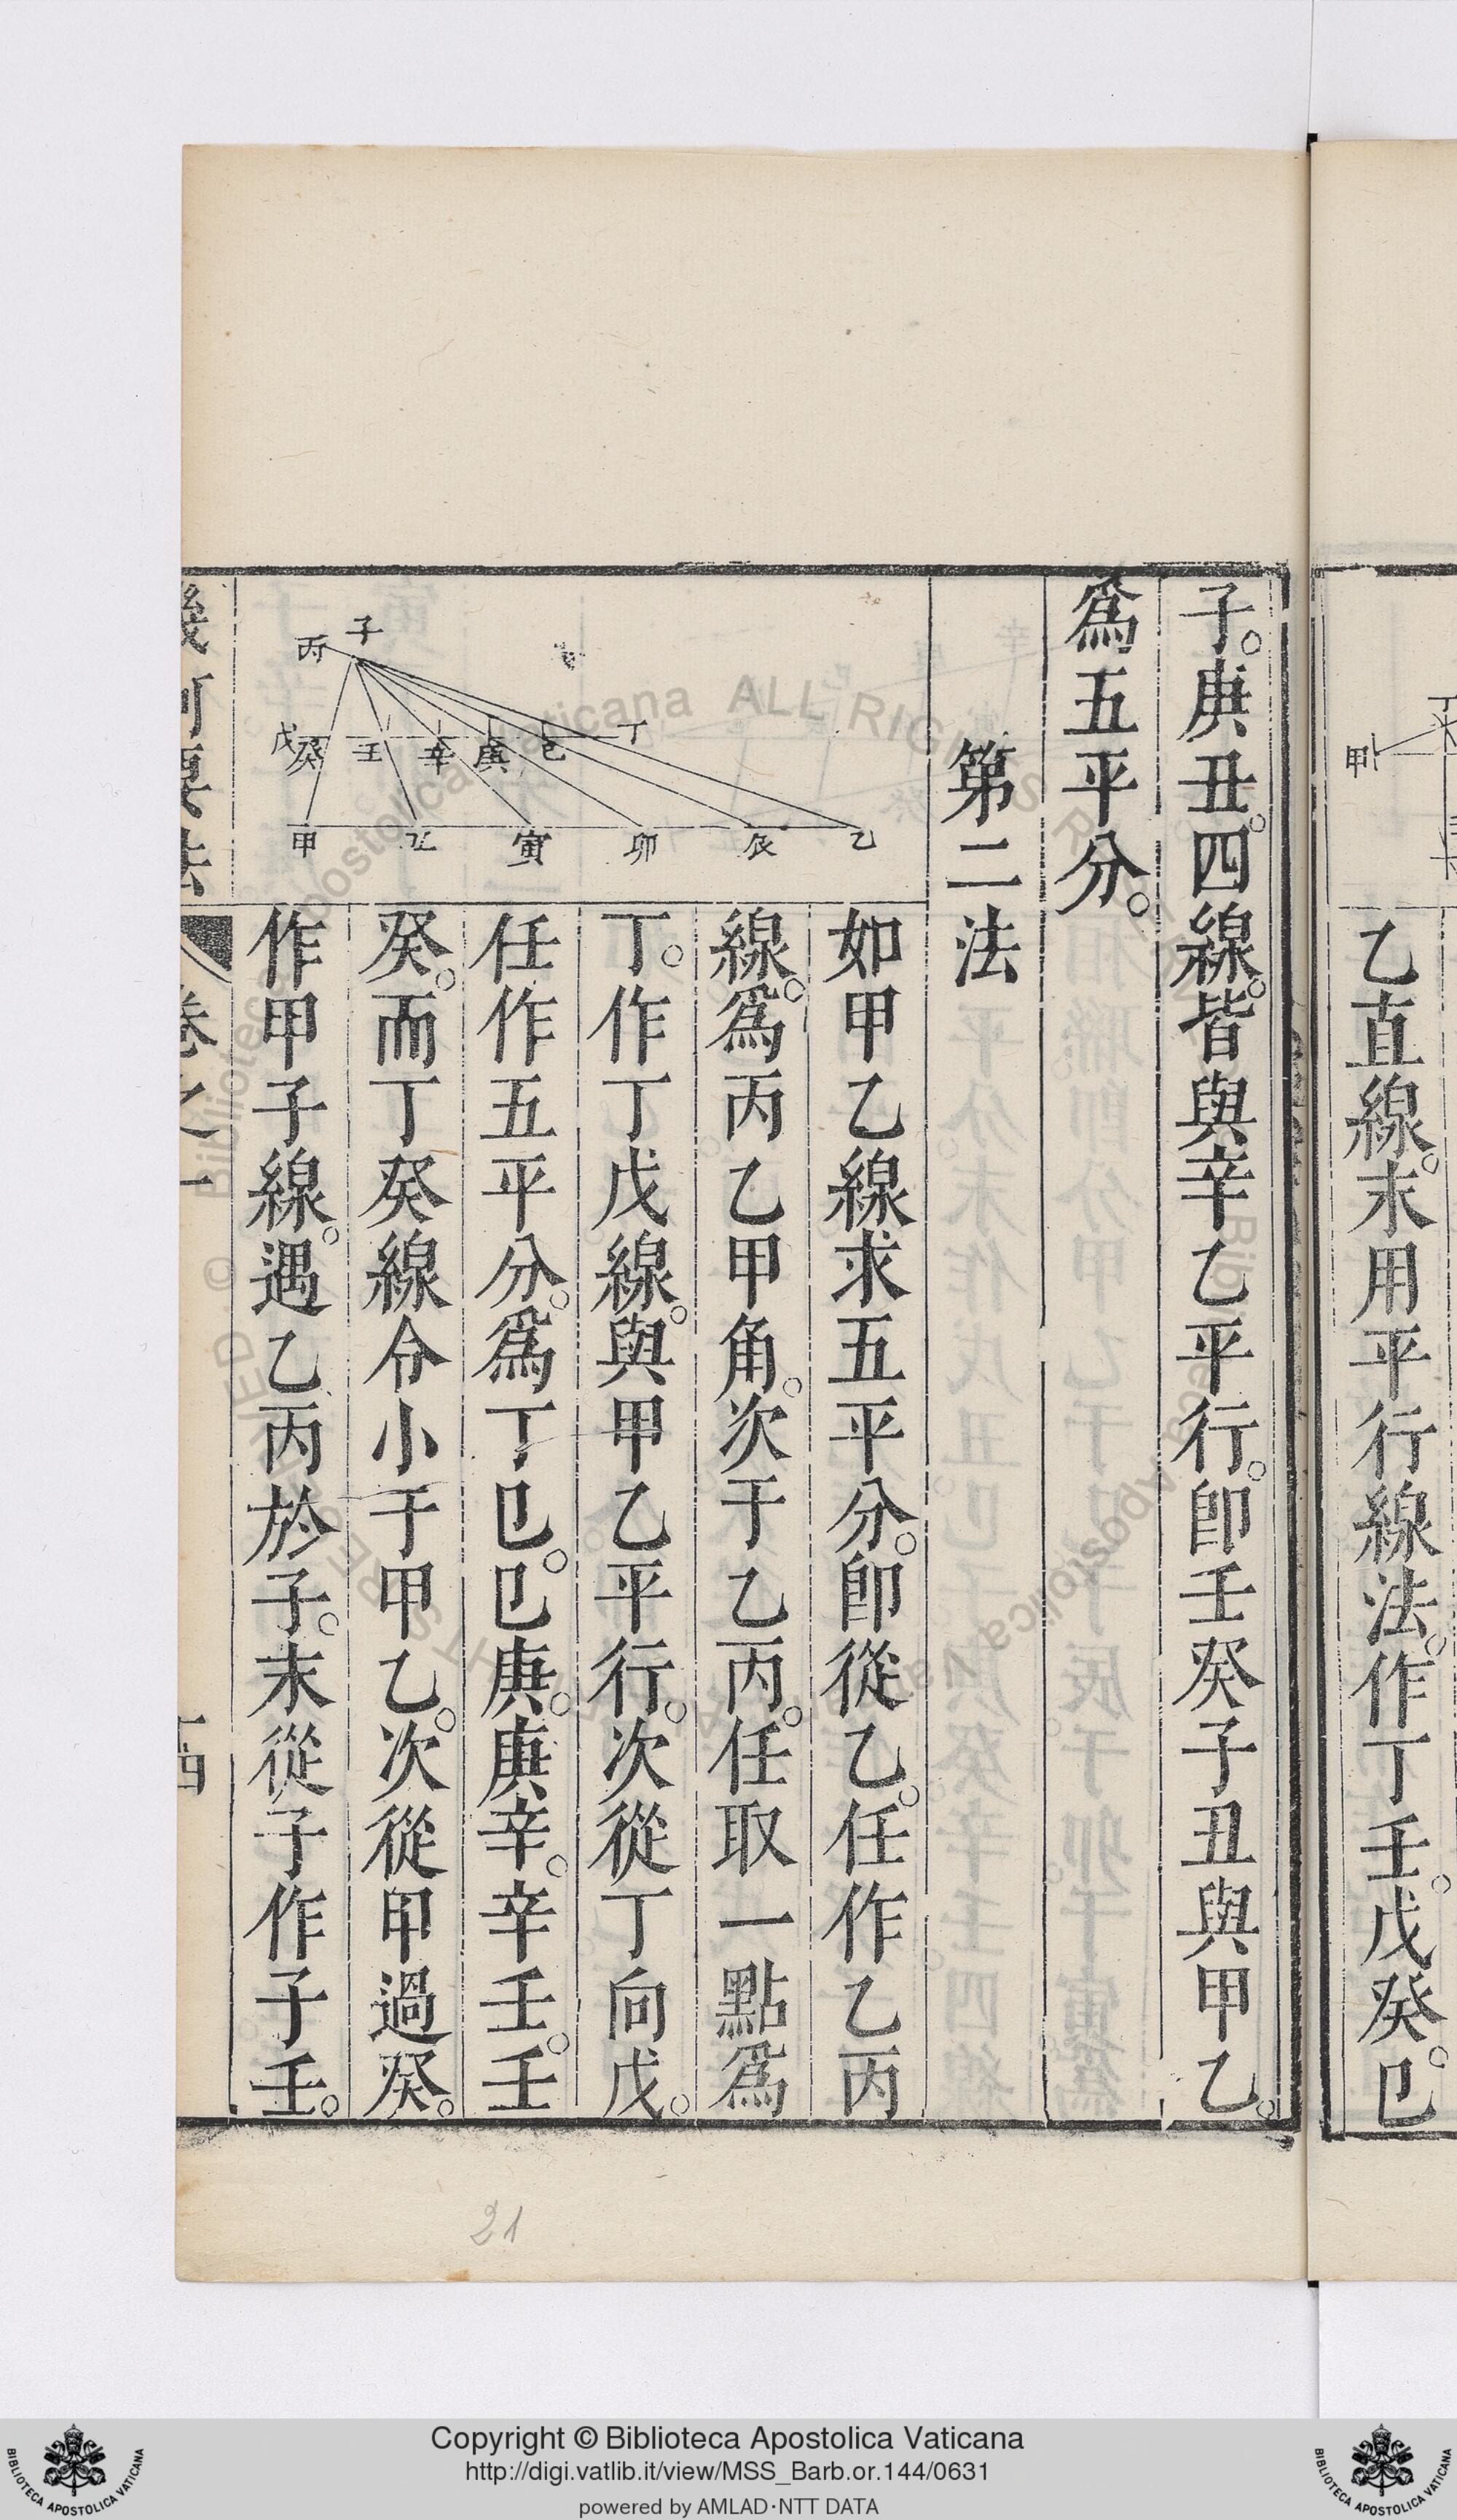 乙直線。末用平行線法。作丁壬。戊癸。巳
甲
丁
子。庚丑。四線。皆與辛乙平行。卽壬癸子丑與甲乙。
爲五平分。
第二法
如甲乙線求五平分。卽從乙。任作乙丙
線。爲丙乙甲角。次于乙丙。任取一點爲
丁。作丁戊線。與甲乙平行。次從丁向戊。
任作五平分。爲丁巳。巳庚。庚辛。辛壬。壬
癸。而丁癸線令小于甲乙。次從甲過癸。
作甲子線。遇乙丙於子。末從子作子壬。
子
丙
丁
巳
庚
辛
壬
癸
戊
乙
辰
卯
寅
丑
甲
幾何要法
卷之一
十四
21
Copyright © Biblioteca Apostolica Vaticana
http://digi.vatlib.it/view/MSS_Barb.or.144/0631
powered by AMLAD·NTT DATA
BIBLIOTECA APOSTOLICA VATICANA
BIBLIOTECA APOSTOLICA VATICANA